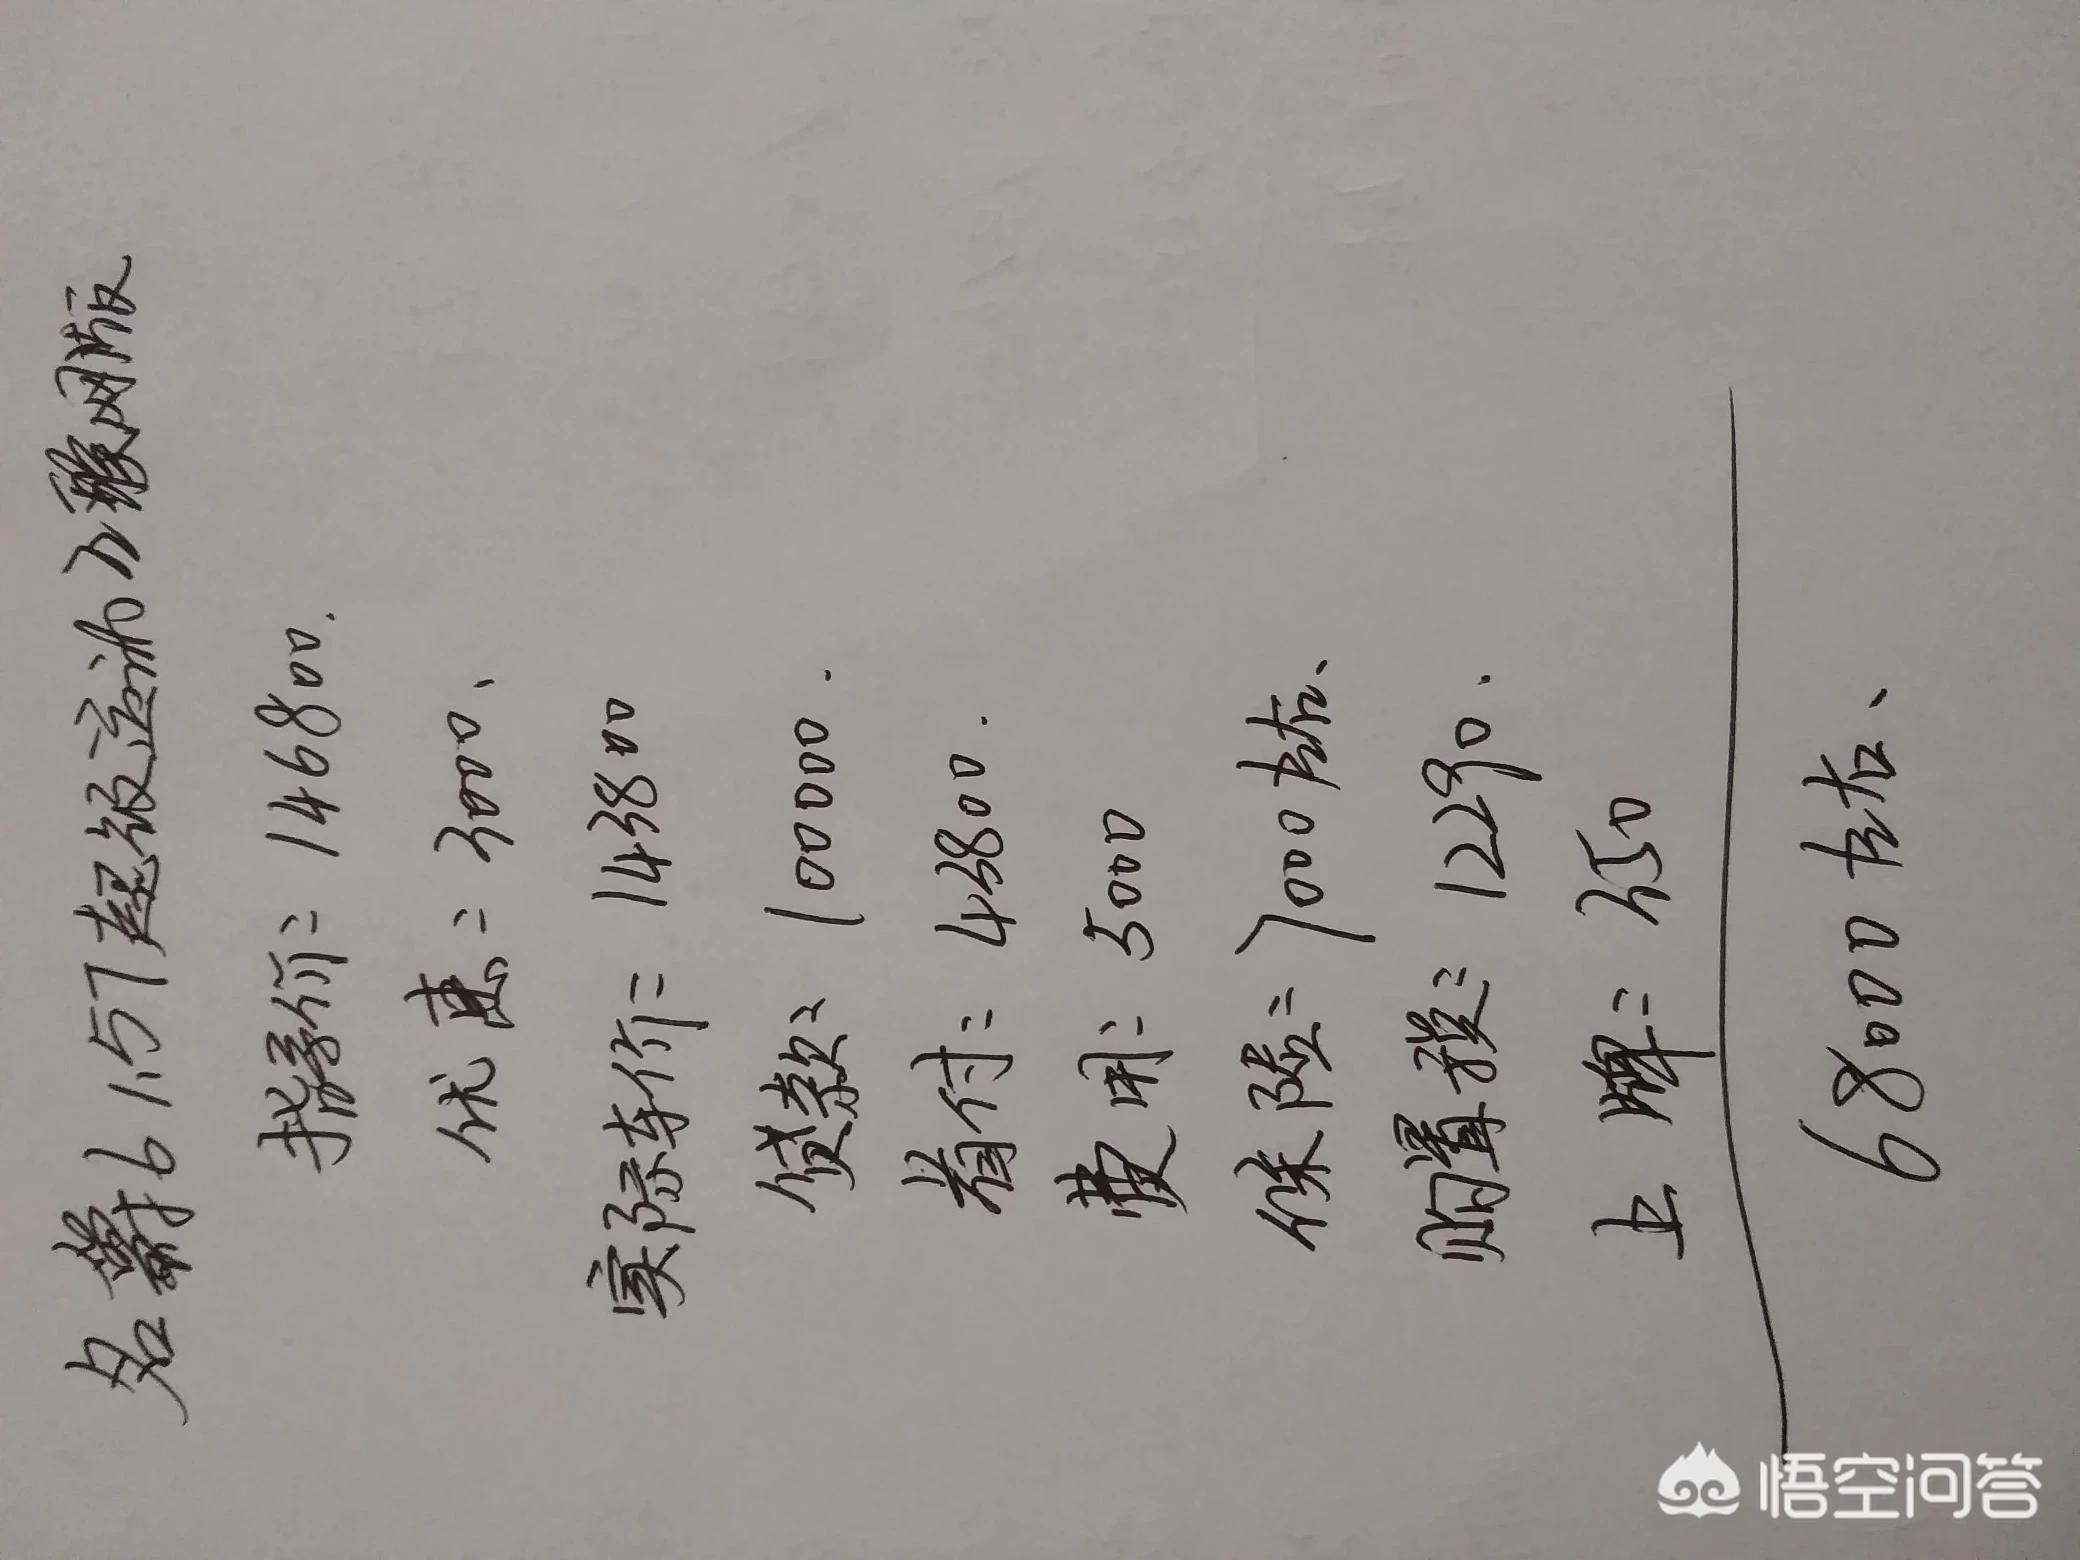 名爵6 1.5T超级运动互联网版
指导价=146800.
优惠=3000、
实际车价=143800
贷款=100000.
首付=43800.
费用=5000
保险=7000左右、
购置税=12290.
上牌=250
68000左右、
悟空问答